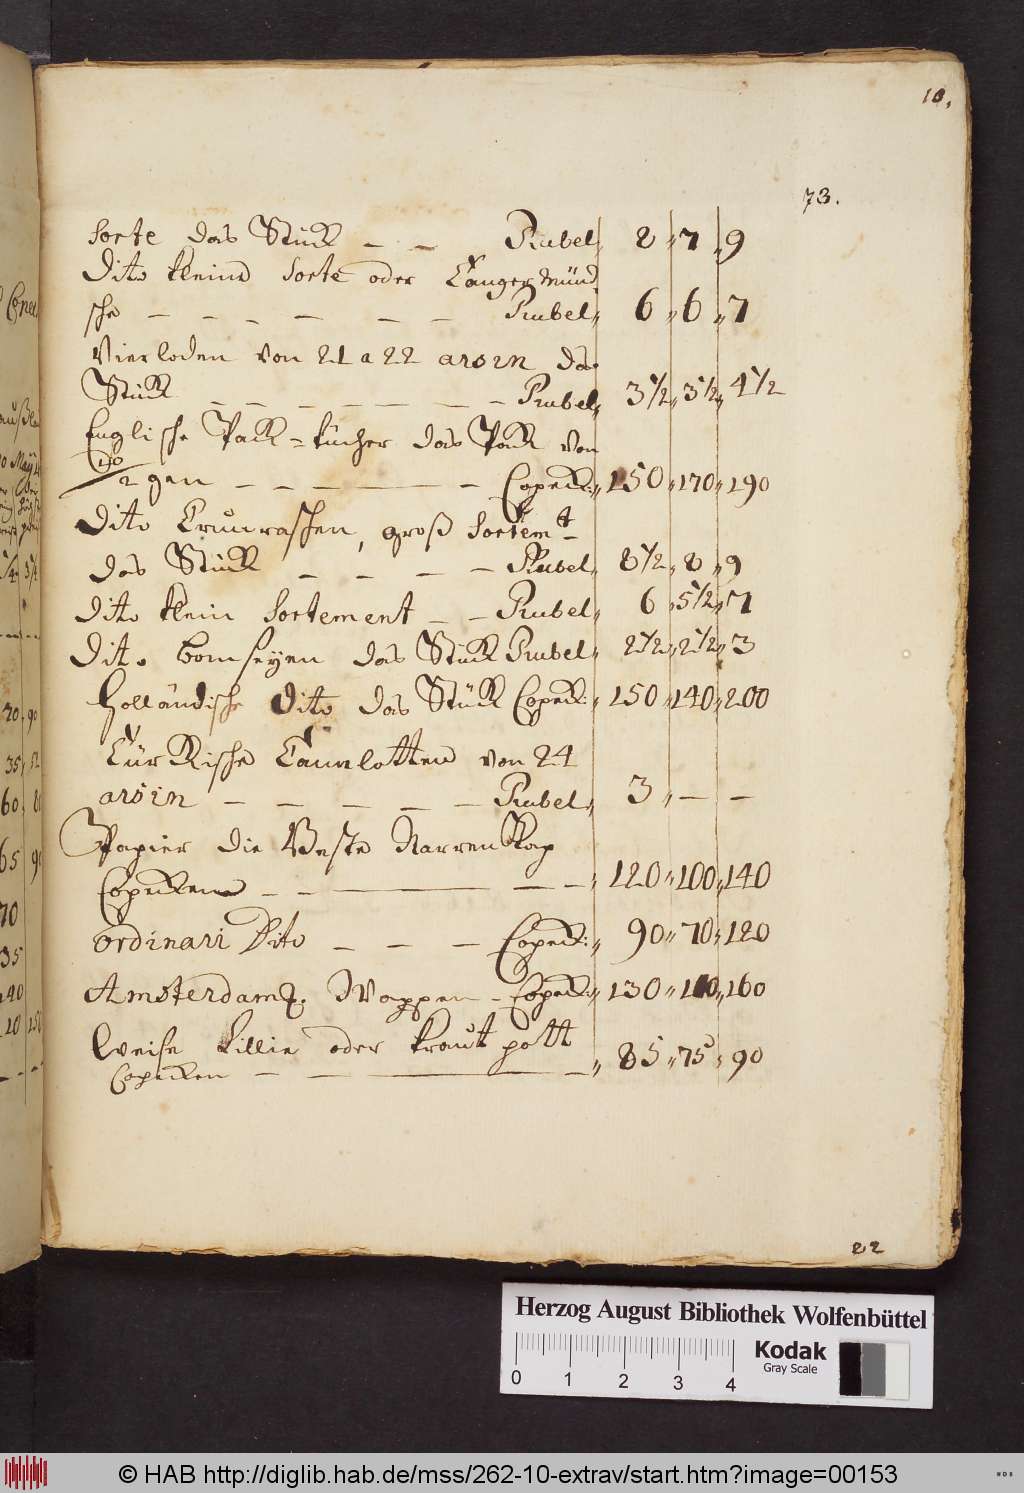 10.
73.
Sorte das Stück — — Rubel 8 7 9
Dito kleine Sorte oder Tangermünd
sche — — — — — — Rubel 6 6 7
Vierloden von 21 a 22 arsin das
Stück — — — — — — Rubel 3 1/2 3 1/2 4 1/2
Englische Pack-tücher das Pack von
/2 gen — — — — — Copeck: 150 170 190
Dito Crunraschen, groß Sortemt
das Stück — — — — Rubel 8 1/2 8 9
Dito klein Sortement — — Rubel 6 5 1/2 7
Dito Bomseyen das Stück Rubel 2 1/2 2 1/2 3
Holländische Dito das Stück Copeck: 150 140 200
Türkische Camlotten von 24
arsin — — — — — Rubel 3 — —
Papier die Beste Narren Kap
Copecken — — — — — 120 100 140
ordinari Dito — — — Copeck: 90 70 120
Amsterdams. Wappen - Copeck: 130 110 160
Weise Lillie oder kraut pott
Copecken — — — 85 75 90
22
Herzog August Bibliothek Wolfenbüttel
Kodak
Gray Scale
0 1 2 3 4
© HAB http://diglib.hab.de/mss/262-10-extrav/start.htm?image=00153